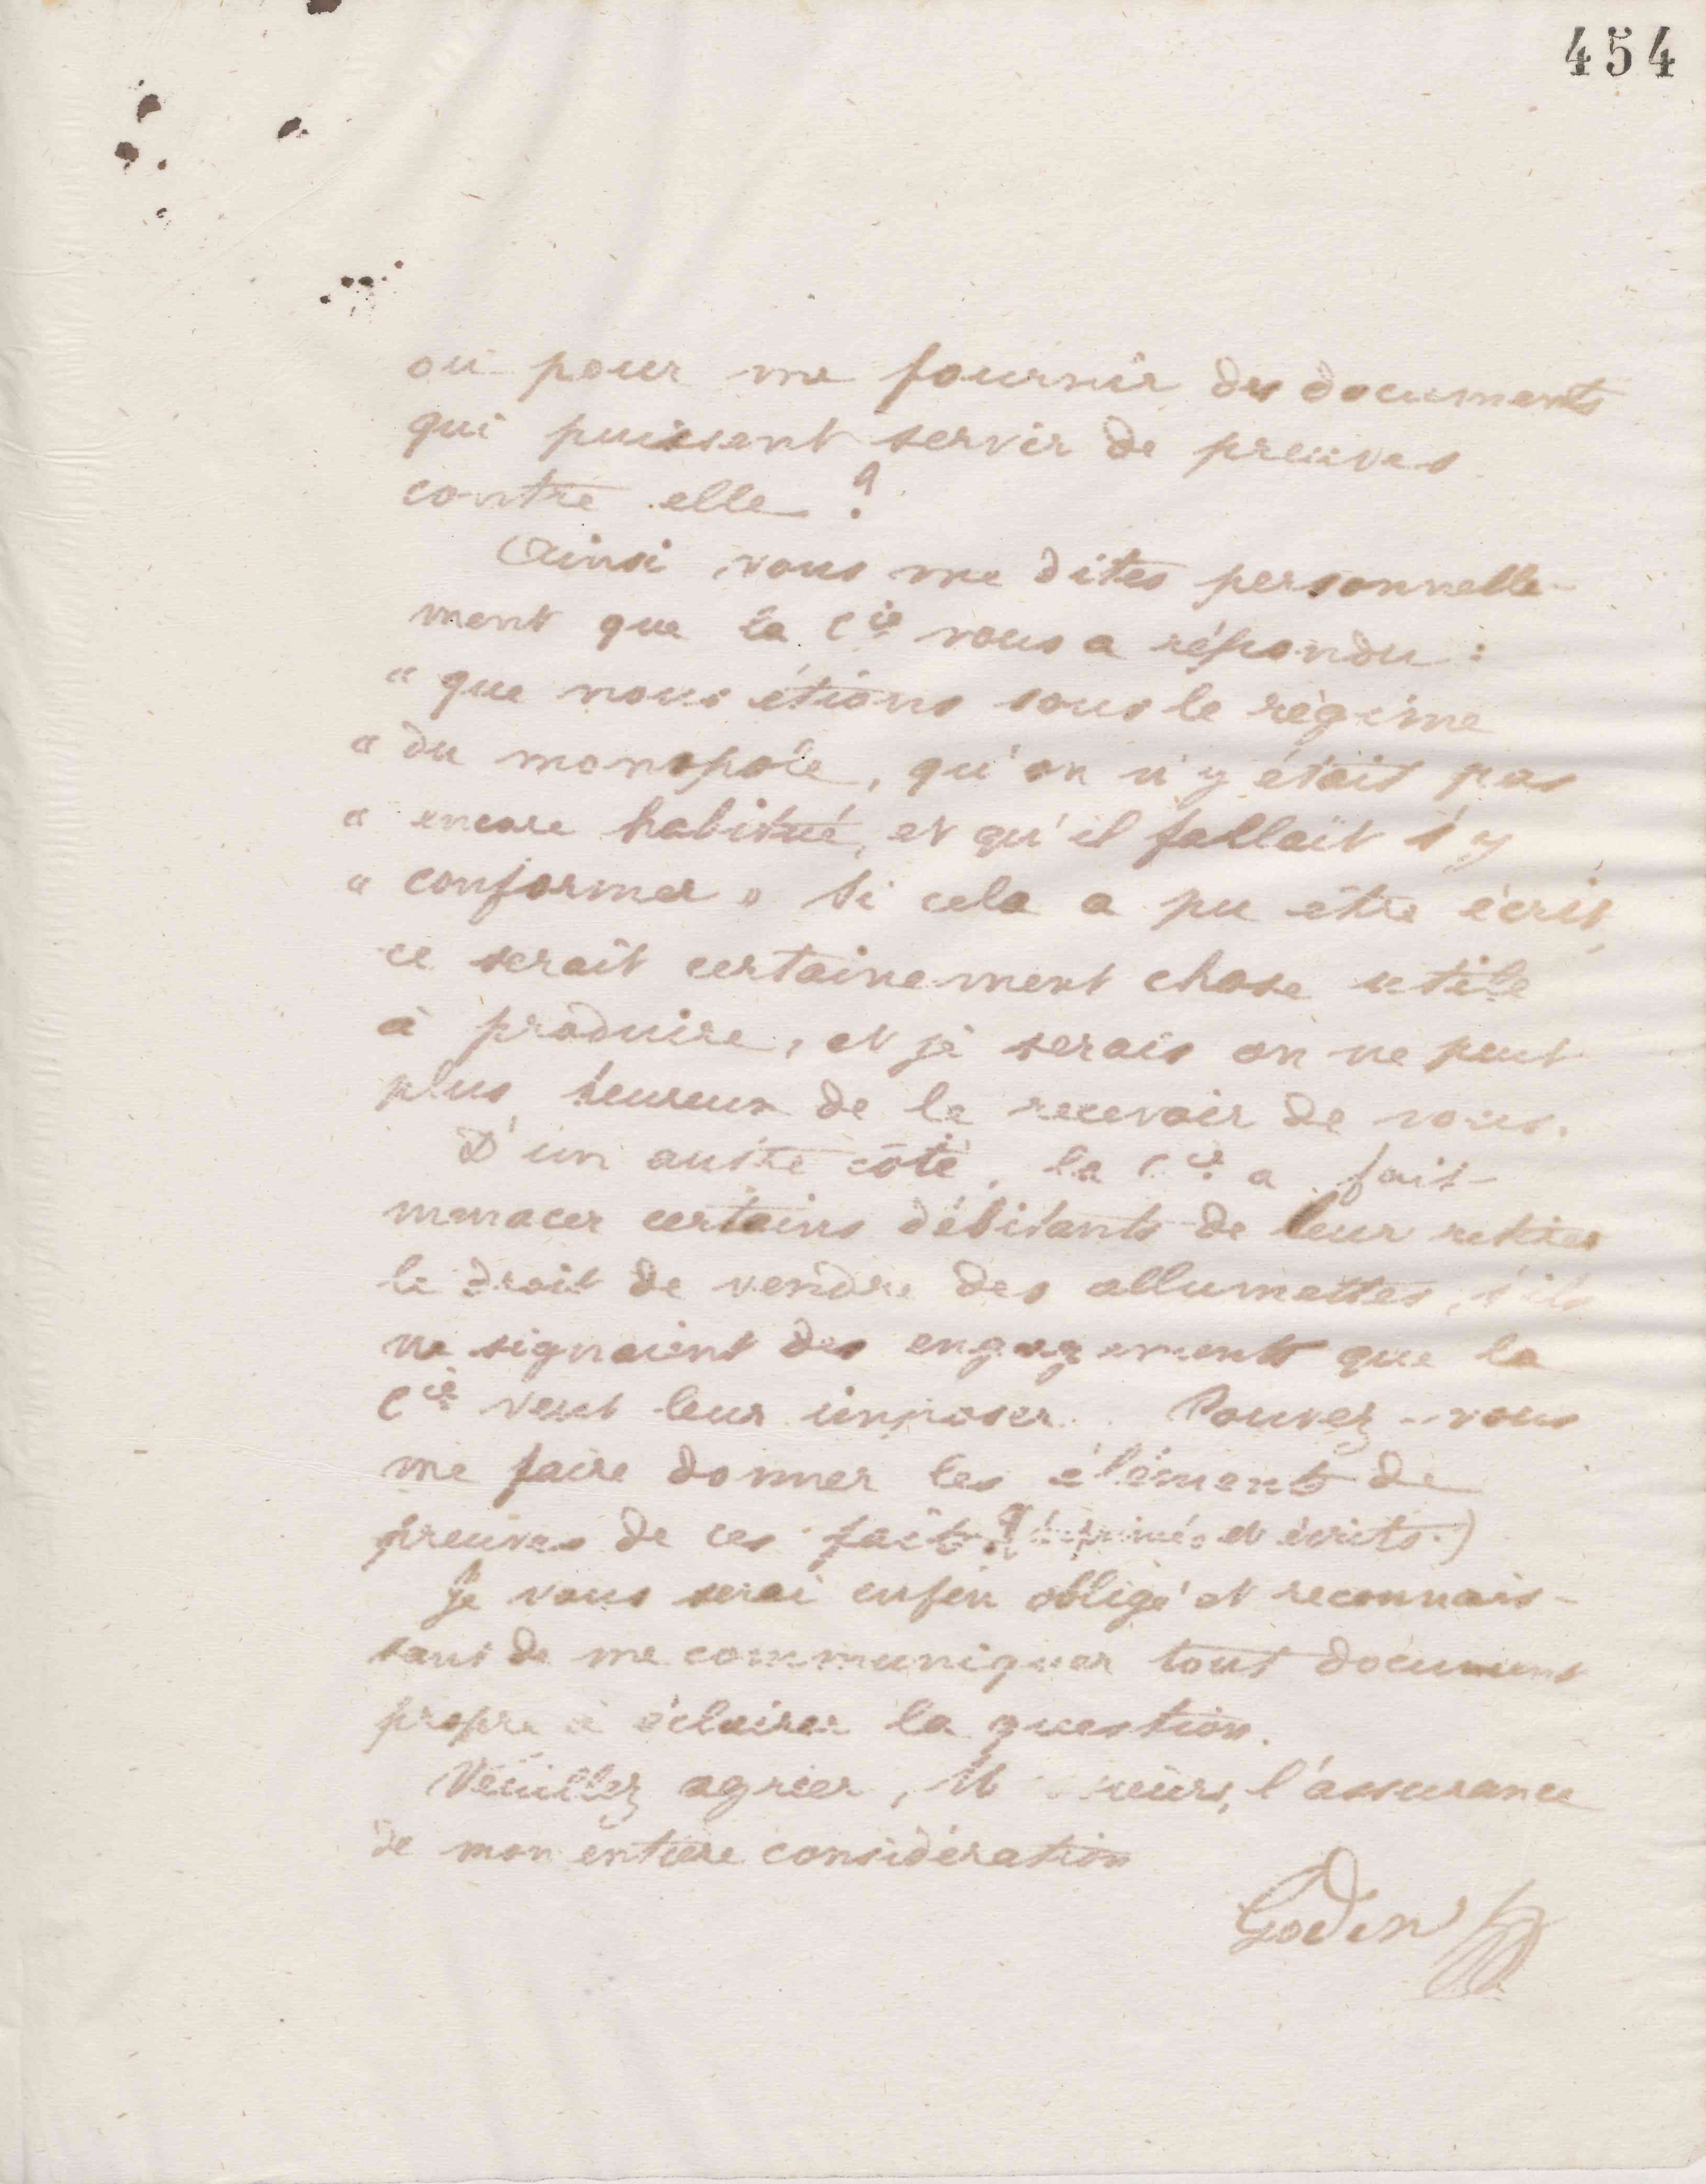 454
ou pour me fournir des documents
qui puissent servir de preuves
contre elle ?
Ainsi vous me dites personnelle-
ment que la Cie vous a répondu :
" que nous étions sous le régime
" du monopole, qu'on n'y était pas
" encore habitué, et qu'il fallait s'y
" conformer " Si cela a pu être écrit,
ce serait certainement chose utile
à produire, et je serais on ne peut
plus heureux de le recevoir de vous.
D'un autre côté, la Cie a fait
menacer certains débitants de leur retirer
le droit de vendre des allumettes, s'ils
ne signaient des engagements que la
Cie veut leur imposer. Pouvez-vous
me faire donner les éléments de
preuves de ces faits ? (imprimés et écrits.)
Je vous serai enfin obligé et reconnais-
sant de me communiquer tout document
propre à éclairer la question.
Veuillez agréer, l'assurance
de mon entière considération
Godin